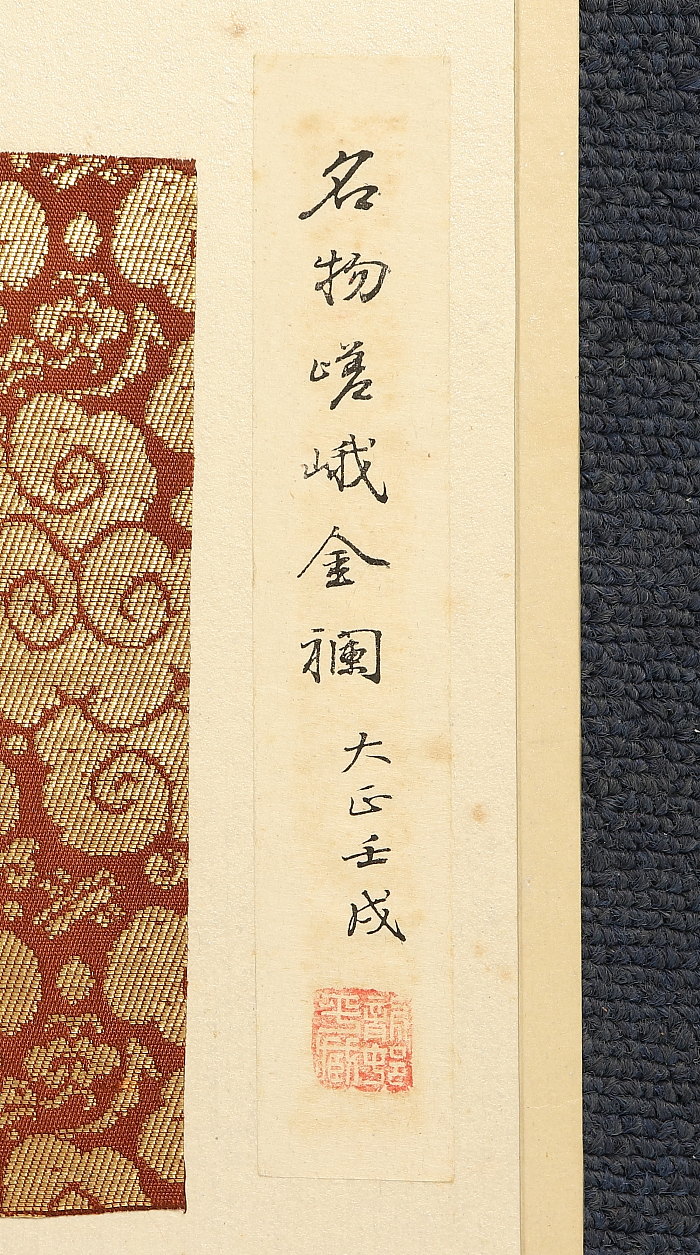 名物嵯峨金襴
大正壬戌